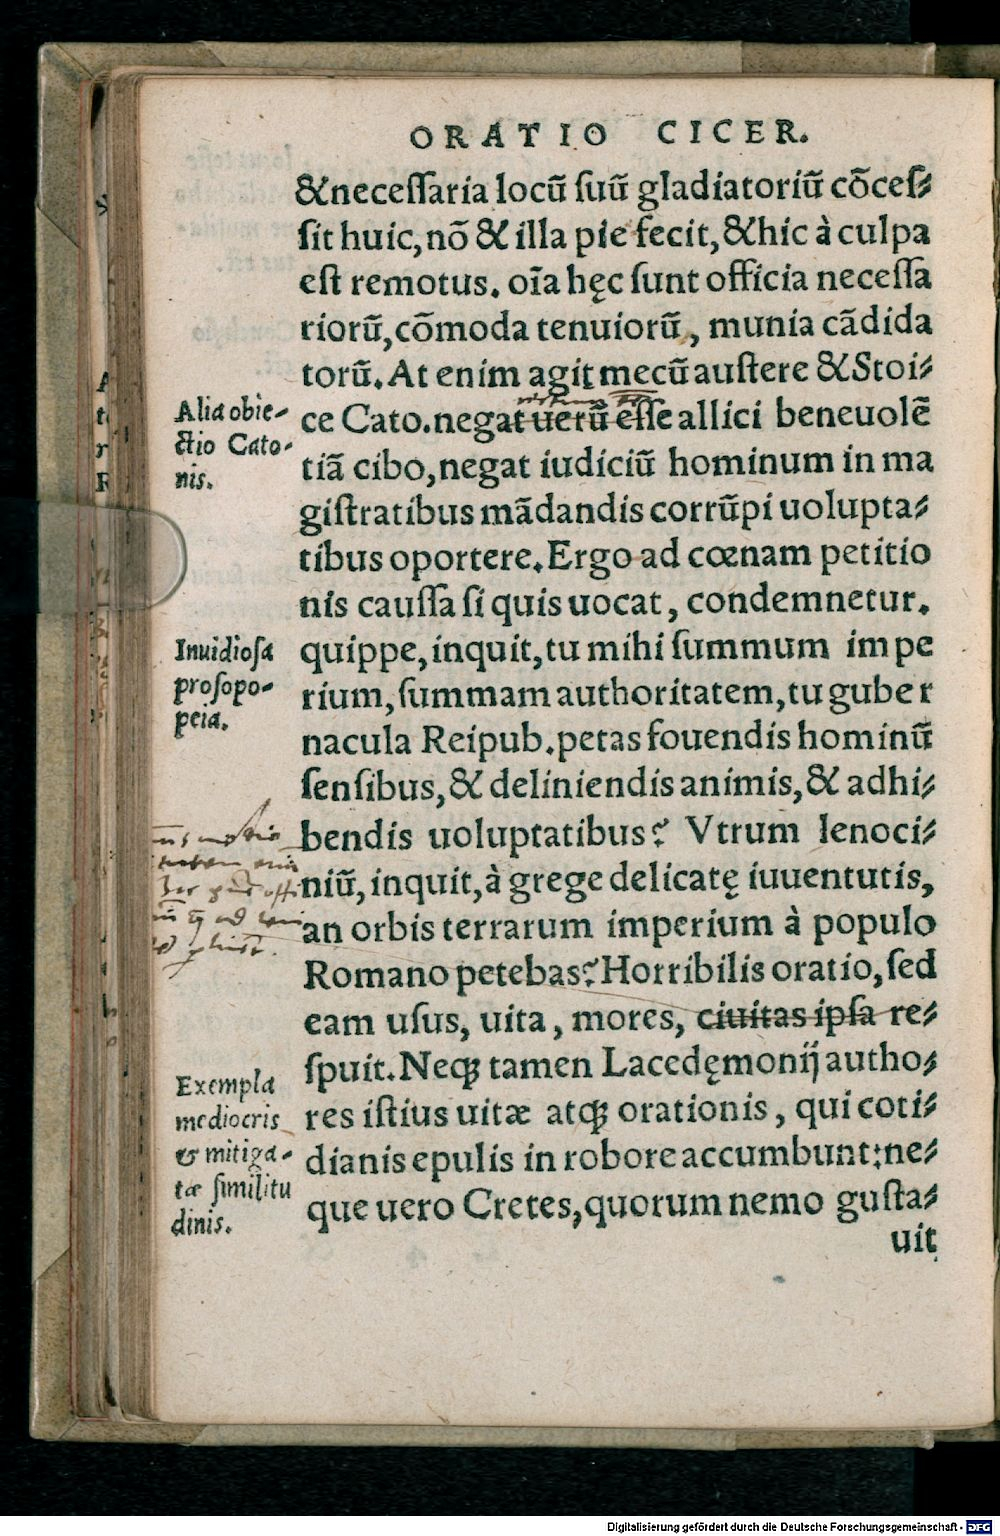 ORATIO CICER.
&necessaria locū suū gladiatoriū cōces⸗
sit huic, nō & illa pie fecit, &hic à culpa
est remotus. oīa hęc sunt officia necessa
riorū, cōmoda tenuiorū, munia cādida
torū. At enim agit mecū austere & Stoi⸗
ce Cato. negat uerū esse allici beneuolē
tiā cibo, negat iudiciū hominum in ma
gistratibus mādandis corrūpi uolupta⸗
tibus oportere. Ergo ad cœnam petitio
nis caussa si quis uocat, condemnetur.
quippe, inquit, tu mihi summum impe
rium, summam authoritatem, tu guber
nacula Reipub. petas fouendis hominū
sensibus, & deliniendis animis, & adhi⸗
bendis uoluptatibus? Vtrum lenoci⸗
niū, inquit, à grege delicatę iuuentutis,
an orbis terrarum imperium à populo
Romano petebas? Horribilis oratio, sed
eam usus, uita, mores, ciuitas ipsa re⸗
spuit. Neqꝫ tamen Lacedęmonij autho⸗
res istius uitæ atqꝫ orationis, qui coti⸗
dianis epulis in robore accumbunt: ne⸗
que uero Cretes, quorum nemo gusta⸗
uit
Alia obie⸗
ctio Cato⸗
nis.
Inuidiosa
prosopo⸗
peia.
Exempla
mediocris
& mitiga⸗
tæ similitu
dinis.
Digitalisierung gefördert durch die Deutsche Forschungsgemeinschaft - DFG